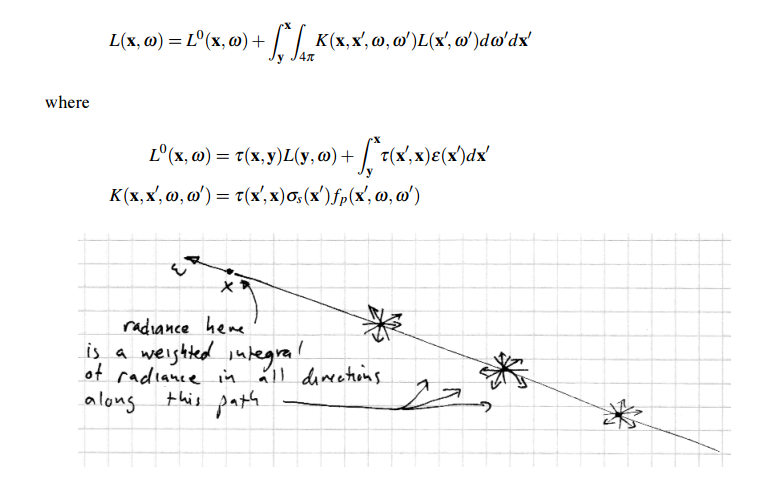 L(x, ω) = L⁰(x, ω) + ∫_y^x ∫_4π K(x, x′, ω, ω′)L(x′, ω′)dω′dx′
where
L⁰(x, ω) = τ(x, y)L(y, ω) + ∫_y^x τ(x′, x)ε(x′)dx′
K(x, x′, ω, ω′) = τ(x′, x)σ_s(x′)f_p(x′, ω, ω′)
ω
x
radiance here
is a weighted integral
of radiance in all directions
along this path